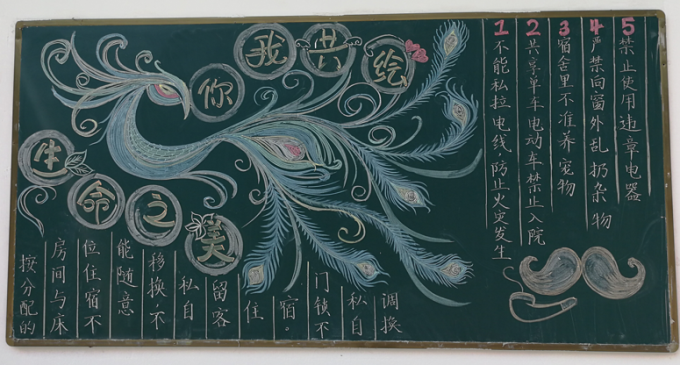 你我共绘
生命之美
按分配的
房间与床
位住宿不
能随意
移换不
私自
留客
住
宿。
门锁不
私自
调换
1 不能私拉电线，防止火灾发生
2 共享单车电动车禁止入院
3 宿舍里不准养宠物
4 严禁向窗外乱扔杂物
5 禁止使用违章电器